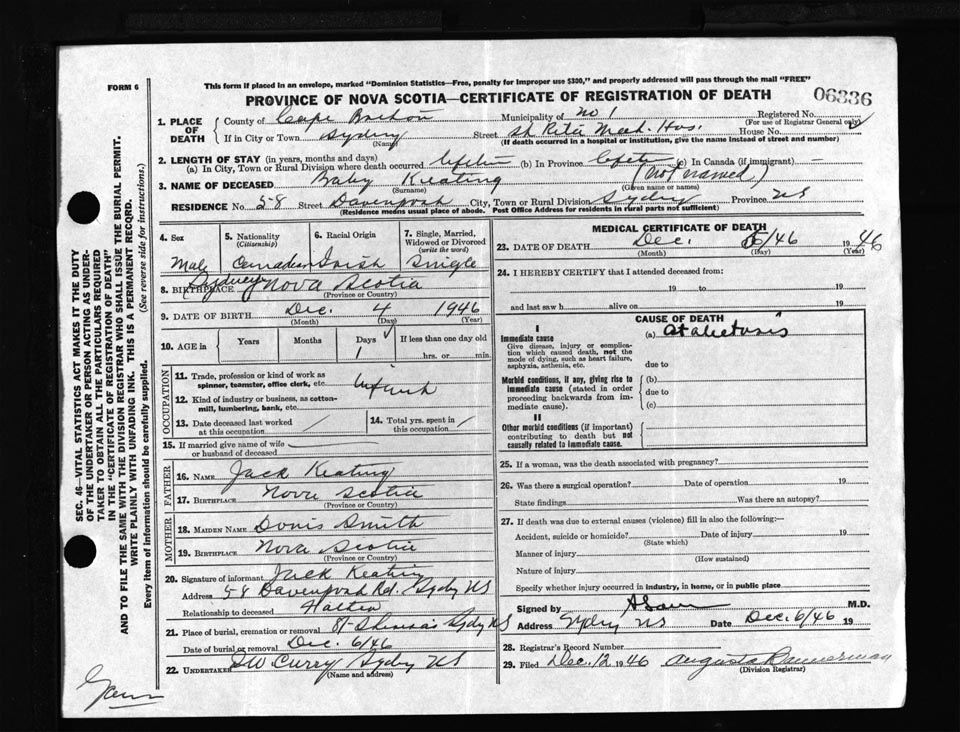 FORM 6
This form if placed in an envelope, marked "Dominion Statistics—Free, penalty for improper use $300," and properly addressed will pass through the mail "FREE"
PROVINCE OF NOVA SCOTIA—CERTIFICATE OF REGISTRATION OF DEATH
06336
1. PLACE OF DEATH
County of Cape Breton
Municipality of No 1
Registered No.
(For use of Registrar General only)
If in City or Town Sydney
(Name)
Street St Rita Hos.
House No.
(If death occurred in a hospital or institution, give the name instead of street and number)
2. LENGTH OF STAY (in years, months and days)
(a) In City, Town or Rural Division where death occurred (b) In Province (c) In Canada (if immigrant) —
3. NAME OF DECEASED Baby Keating (Not named)
(Surname) (Given name or names)
RESIDENCE No. 58 Street City, Town or Rural Division Sydney Province NS
(Residence means usual place of abode. Post Office Address for residents in rural parts not sufficient)
4. Sex
Male
5. Nationality
(Citizenship)
Canadian
6. Racial Origin
Irish
7. Single, Married, Widowed or Divorced
(write the word)
Single
8. BIRTHPLACE Sydney Nova Scotia
(Province or Country)
9. DATE OF BIRTH Dec. 4 1946
(Month) (Day) (Year)
10. AGE in
Years Months Days If less than one day old
1 hrs. or min.
OCCUPATION
11. Trade, profession or kind of work as spinner, teamster, office clerk, etc.
12. Kind of industry or business, as cotton-mill, lumbering, bank, etc.
13. Date deceased last worked at this occupation /
14. Total yrs. spent in this occupation /
15. If married give name of wife or husband of deceased
FATHER
16. NAME Jack Keating
17. BIRTHPLACE Nova Scotia
(Province or Country)
MOTHER
18. MAIDEN NAME Smith
19. BIRTHPLACE Nova Scotia
(Province or Country)
20. Signature of informant Jack Keating
Address 58 Rd. Sydney NS
Relationship to deceased Father
21. Place of burial, cremation or removal Sydney NS
Date of burial or removal Dec. 6/46
22. UNDERTAKER Curry Sydney NS
(Name and address)
MEDICAL CERTIFICATE OF DEATH
23. DATE OF DEATH Dec. /46 1946
(Month) (Day) (Year)
24. I HEREBY CERTIFY that I attended deceased from:
19 to 19
and last saw h alive on 19
CAUSE OF DEATH
I
Immediate cause
Give disease, injury or complication which caused death, not the mode of dying, such as heart failure, asphyxia, asthenia, etc.
(a)
due to
Morbid conditions, if any, giving rise to immediate cause (stated in order proceeding backwards from immediate cause).
(b)
due to
(c)
II
Other morbid conditions (if important) contributing to death but not causally related to immediate cause.
25. If a woman, was the death associated with pregnancy?
26. Was there a surgical operation? Date of operation 19
State findings Was there an autopsy?
27. If death was due to external causes (violence) fill in also the following:—
Accident, suicide or homicide? Date of injury 19
(State which)
Manner of injury
(How sustained)
Nature of injury
Specify whether injury occurred in industry, in home, or in public place
Signed by M.D.
Address Sydney NS Date Dec 6/46 19
28. Registrar's Record Number
29. Filed Dec. 12 1946 Augusta Bannerman
(Division Registrar)
SEC. 46—VITAL STATISTICS ACT MAKES IT THE DUTY
OF THE UNDERTAKER OR PERSON ACTING AS UNDERTAKER TO OBTAIN ALL THE PARTICULARS REQUIRED
IN THE "CERTIFICATE OF REGISTRATION OF DEATH"
AND TO FILE THE SAME WITH THE DIVISION REGISTRAR WHO SHALL ISSUE THE BURIAL PERMIT.
WRITE PLAINLY WITH UNFADING INK. THIS IS A PERMANENT RECORD.
Every item of information should be carefully supplied. (See reverse side for instructions.)